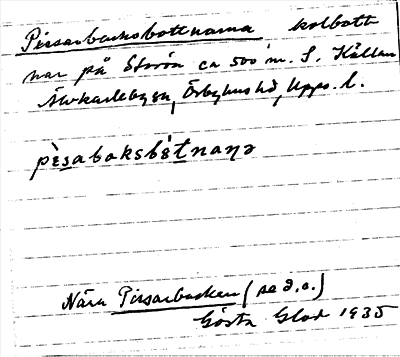 Pirsarbacksbottnarna kolbott
nar på Storön ca 500 m. S. Källan
Älvkarlebyn, Örbyhus hd, Upps. l.
pèsabaksbètnaṇa
Nära Pirsarbacken (se d.o.)
Gösta Glad 1935